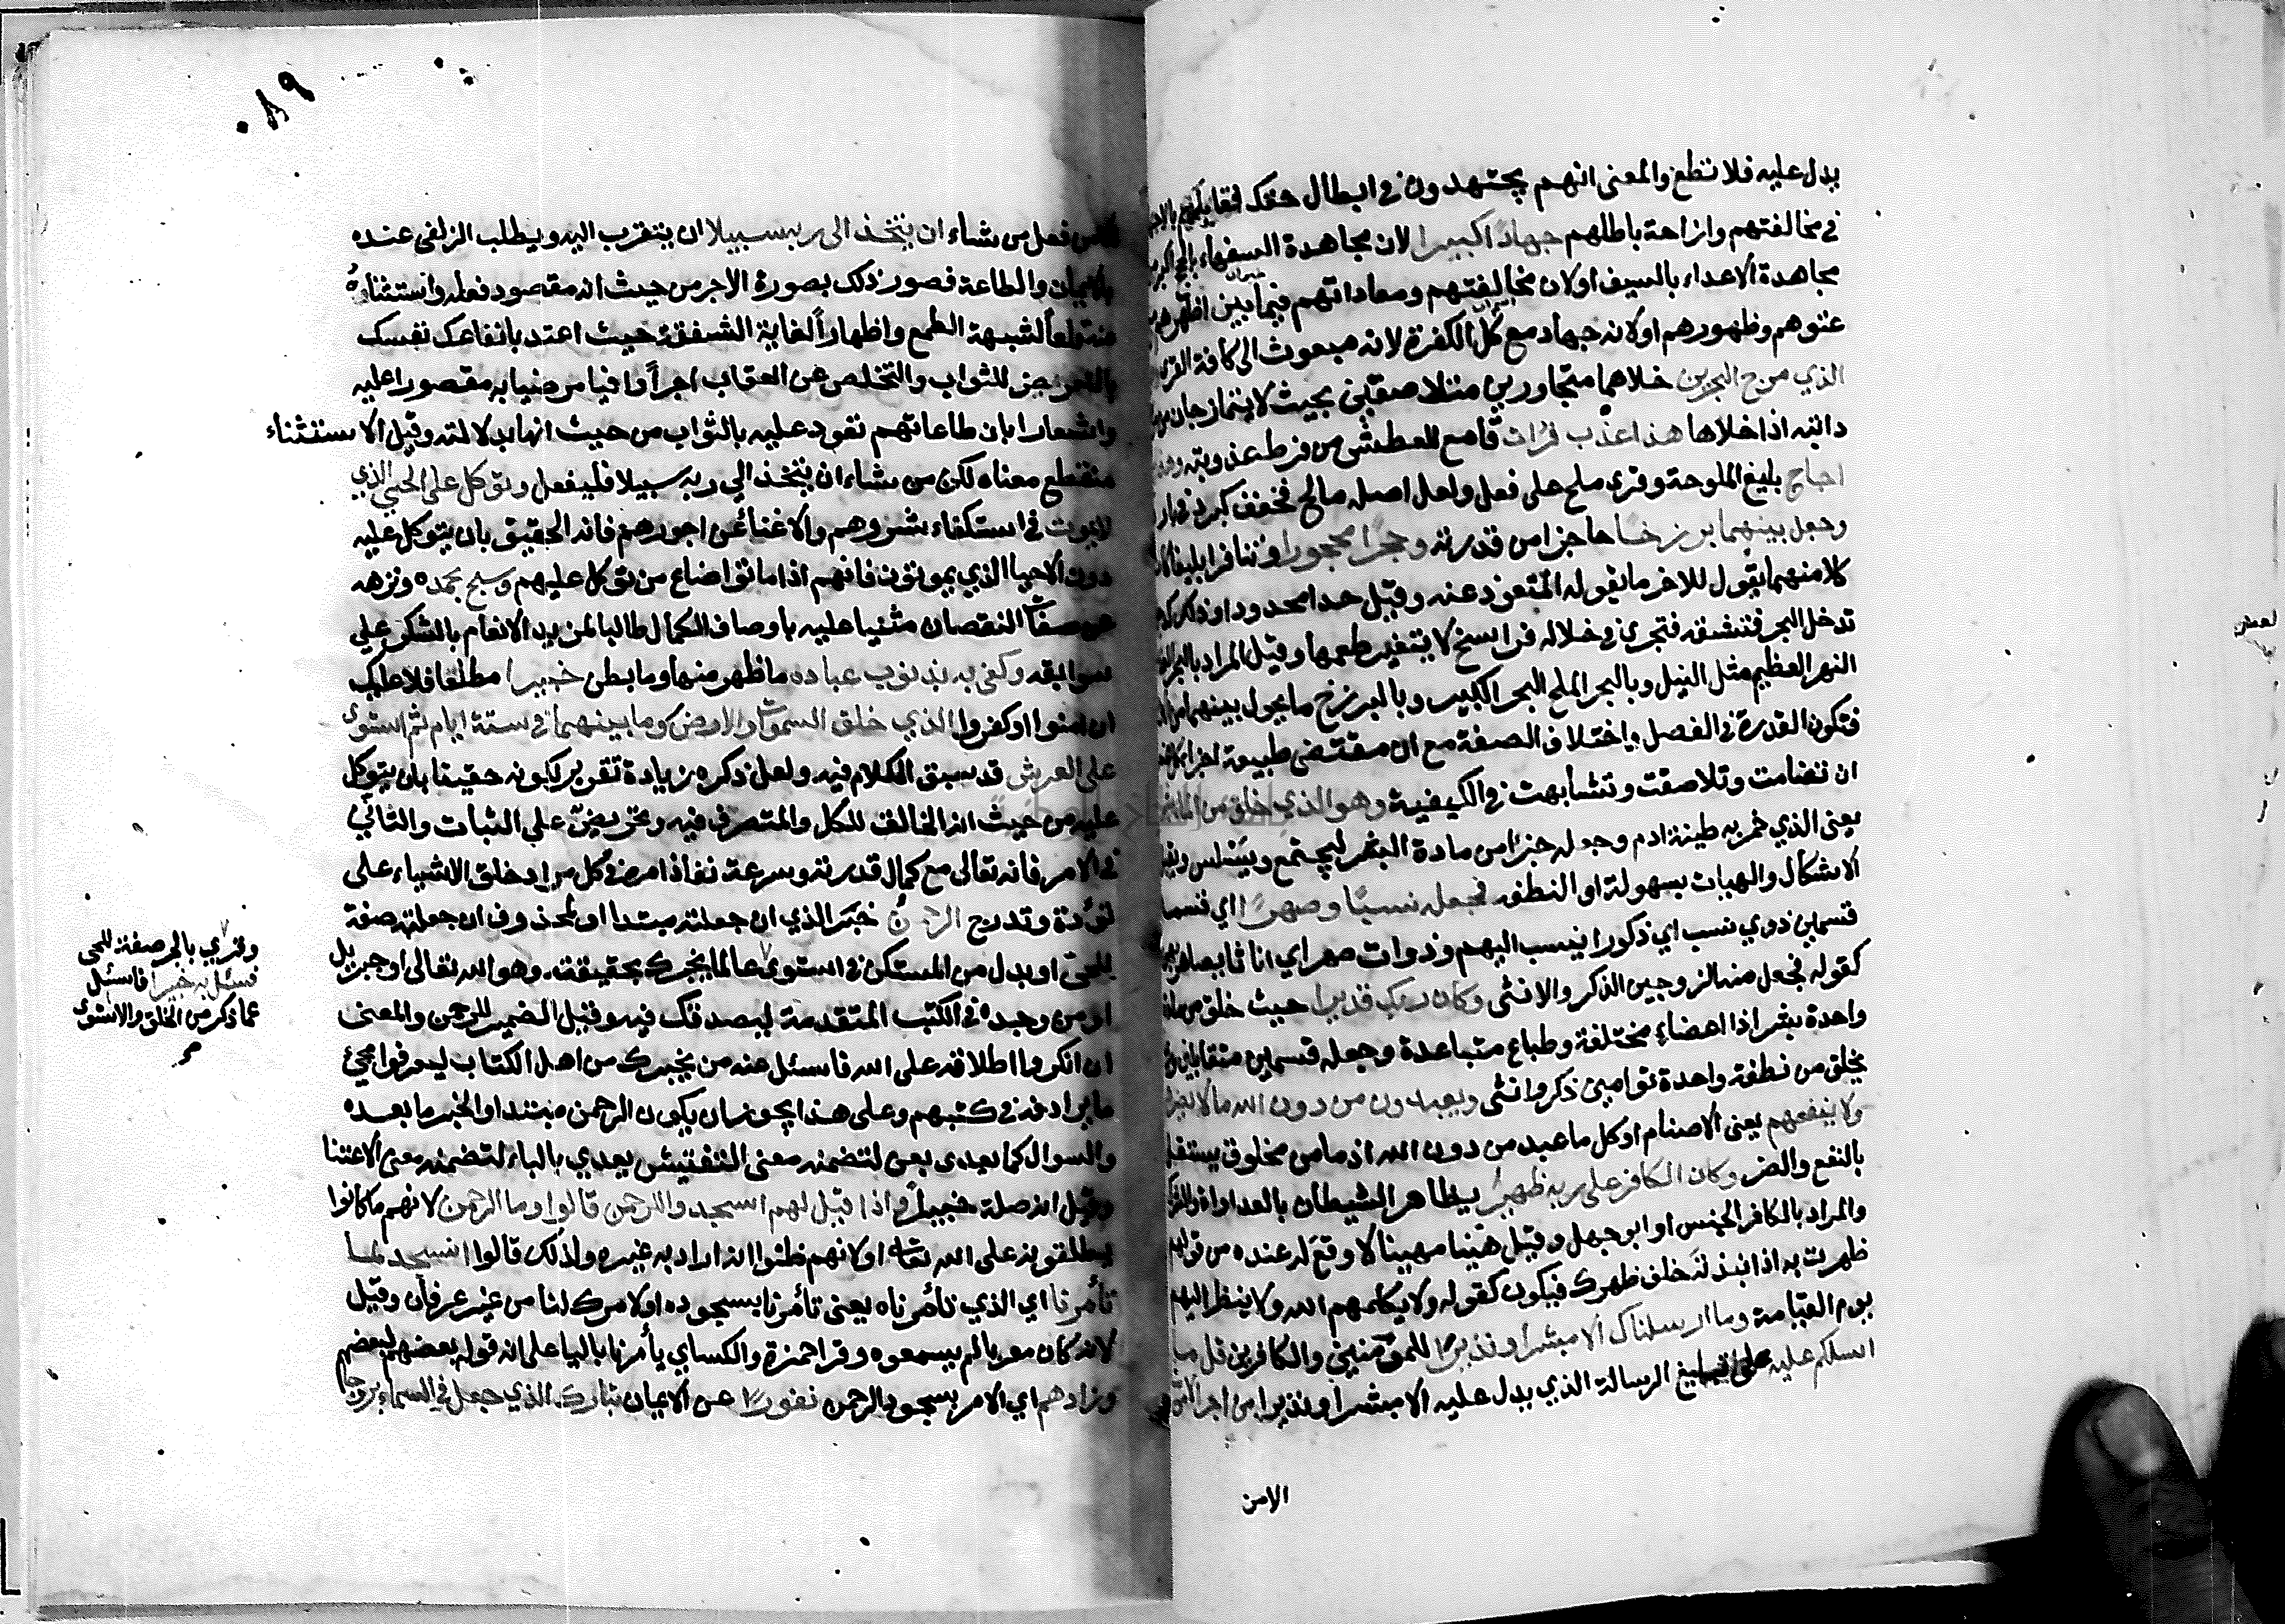 يدل عليه فلا تطع والمعنى انهم يجتهدون في ابطال حقك فقابلهم بالاجتهاد
في مخالفتهم وازاحة باطلهم جهادا كبيرا لان مجاهدة السفهاء بالحجج اكبر من
مجاهدة الاعداء بالسيف اولان مخالفتهم ومعاداتهم فيما بين اظهرهم مع
عتوهم وظهورهم اولانه جهاد مع كل الكفرة لانه مبعوث الى كافة القرى
الذي مرج البحرين خلاهما متجاورين متلاصقين بحيث لا يتمازجان من مرج
دابته اذا خلاها هذا عذب فرات قامع للعطش من فرط عذوبته وهذا
اجاج بليغ الملوحة وقرى ملح على فعل ولعل اصله مالح فخفف كبرد في بارد
وجعل بينهما برزخا حاجزا من قدرته وحجرا محجورا وتنافرا بليغا كان
كلا منهما يقول للاخر ما يقوله المتعوذ عنه وقيل حدا محدودا وذلك كدجلة
تدخل البحر فتشقه فتجري في خلاله فراسخ لا يتغير طعمها وقيل المراد بالبحر العذب
النهر العظيم مثل النيل وبالبحر الملح البحر الكبير وبالبرزخ ما يحول بينهما من الارض
فتكون القدرة في الفصل واختلاف الصفة مع ان مقتضى طبيعة اجزاء كل عنصر
ان تضامت وتلاصقت وتشابهت في الكيفية وهو الذي خلق من الماء بشرا
يعنى الذي خمر به طينة ادم وجعله جزا من مادة البشر ليجتمع ويسلس ويقبل
الاشكال والهيات بسهولة او النطفه فجعله نسبا وصهرا اي قسمه
قسمين ذوي نسب اي ذكورا ينسب اليهم وذوات صهر اي اناثا يصاهر بهن
كقوله فجعل منه الزوجين الذكر والانثى وكان ربك قديرا حيث خلق من مادة
واحدة بشرا ذا اعضاء مختلفة وطباع متباعدة وجعله قسمين متقابلين
يخلق من نطفة واحدة توامين ذكرا وانثى ويعبدون من دون الله ما لا يضرهم
ولا ينفعهم يعنى الاصنام او كل ما عبد من دون الله اذ ما من مخلوق يستقل
بالنفع والضر وكان الكافر على ربه ظهيرا يظاهر الشيطان بالعداوة والشرك
والمراد بالكافر الجنس او ابو جهل وقيل هينا مهينا لا وقع له عنده من قولهم
ظهرت به اذا نبذته خلف ظهرك فيكون كقوله ولا يكلمهم الله ولا ينظر اليهم
يوم القيامة وما ارسلناك الا مبشرا ونذيرا للمؤمنين والكافرين قل ما
اسئلكم عليه على تبليغ الرسالة الذي يدل عليه الا مبشرا ونذيرا من اجر
الامن
٨٩
الامن فعل من شاء ان يتخذ الى ربه سبيلا ان يتقرب اليه ويطلب الزلفى عنده
بالايمان والطاعة فصور ذلك بصورة الاجر من حيث انه مقصود فعله واستثناه
منه قلعا لشبهة الطمع واظهارا لغاية الشفقة حيث اعتد بانفاعك نفسك
بالتعريض للثواب والتخلص عن العقاب اجرا وافيا مرضيا به مقصورا عليه
واشعارا بان طاعاتهم تعود عليه بالثواب من حيث انها بدلالته وقيل الاستثناء
منقطع معناه لكن من شاء ان يتخذ الى ربه سبيلا فليفعل وتوكل على الحي الذي
لا يموت في استكفاء شرورهم والاغنا عن اجورهم فانه الحقيق بان يتوكل عليه
دون الاحيا الذي يموتون فانهم اذا ماتوا ضاع من توكل عليهم وسبح بحمده ونزهه
عن صفات النقصان مثنيا عليه باوصاف الكمال طالبا لمزيد الانعام بالشكر على
سوابقه وكفى به بذنوب عباده ما ظهر منها وما بطن خبيرا مطلعا فلا عليك
ان امنوا او كفروا الذي خلق السموات والارض وما بينهما في ستة ايام ثم استوى
على العرش قد سبق الكلام فيه ولعل ذكره زيادة تقرير لكونه حقيقا بان يتوكل
عليه من حيث انه الخالق للكل والمتصرف فيه وتحريض على الثبات والتاني
في الامر فانه تعالى مع كمال قدرته وسرعة نفاذ امره في كل مراد خلق الاشياء على
تؤدة وتدرج الرحمن خبر الذي ان جعلته مبتدا او لمحذوف ان جعلته صفة
للحي او بدل من المستكن في استوى عالما يخبرك بحقيقته وهو الله تعالى او جبريل
او من وجده في الكتب المتقدمة ليصدقك فيه وقيل الضمير للرحمن والمعنى
ان انكروا اطلاقه على الله فاسئل عنه من يخبرك من اهل الكتاب ليعرفوا مجئ
ما يرادفه في كتبهم وعلى هذا يجوز ان يكون الرحمن مبتدا والخبر ما بعده
والسوال كما يعدى بعن لتضمنه معنى التفتيش يعدي بالباء لتضمنه معنى الاعتنا
وقيل انه صلة خبيرا واذا قيل لهم اسجدوا للرحمن قالوا وما الرحمن لانهم ما كانوا
يطلقونه على الله تعالى او لانهم ظنوا انه اراد به غيره ولذلك قالوا انسجد لما
تأمرنا اي الذي تأمرناه يعنى تأمرنا بسجوده او لامرك لنا من غير عرفان وقيل
لانه كان معربا لم يسمعوه وقرا حمزة والكساي يأمرنا باليا على انه قول بعضهم لبعضهم
وزادهم اي الامر بسجود الرحمن نفورا عن الايمان تبارك الذي جعل في السماء بروجا
وقري بالجر صفة للحى
فسئل به خبيرا فاسئل
عما ذكر من الخلق والاستوى